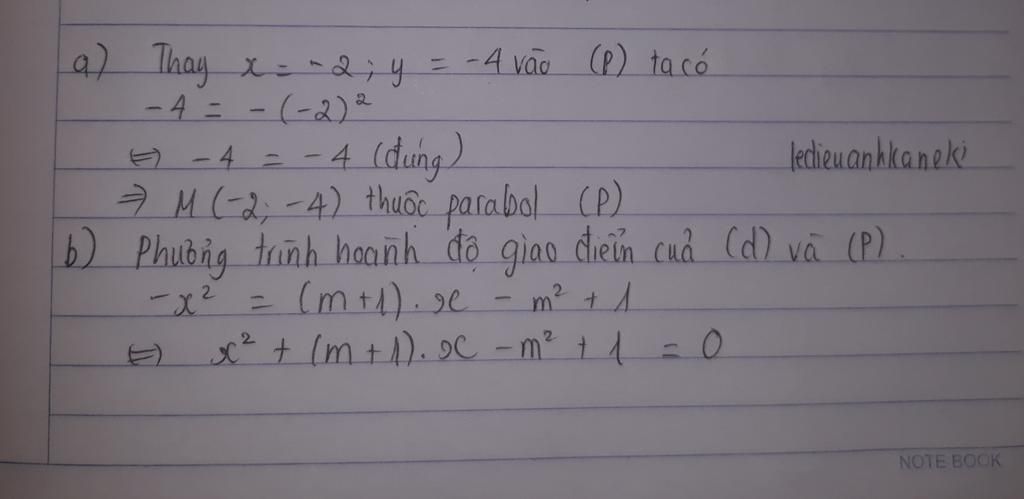 a) Thay x = -2; y = -4 vào (P) ta có
-4 = -(-2)²
⇔ -4 = -4 (đúng)
ledieuanhkaneki
⇒ M(-2; -4) thuộc parabol (P)
b) Phương trình hoành độ giao điểm của (d) và (P).
-x² = (m+1).x - m² + 1
⇔ x² + (m+1).x - m² + 1 = 0
NOTE BOOK